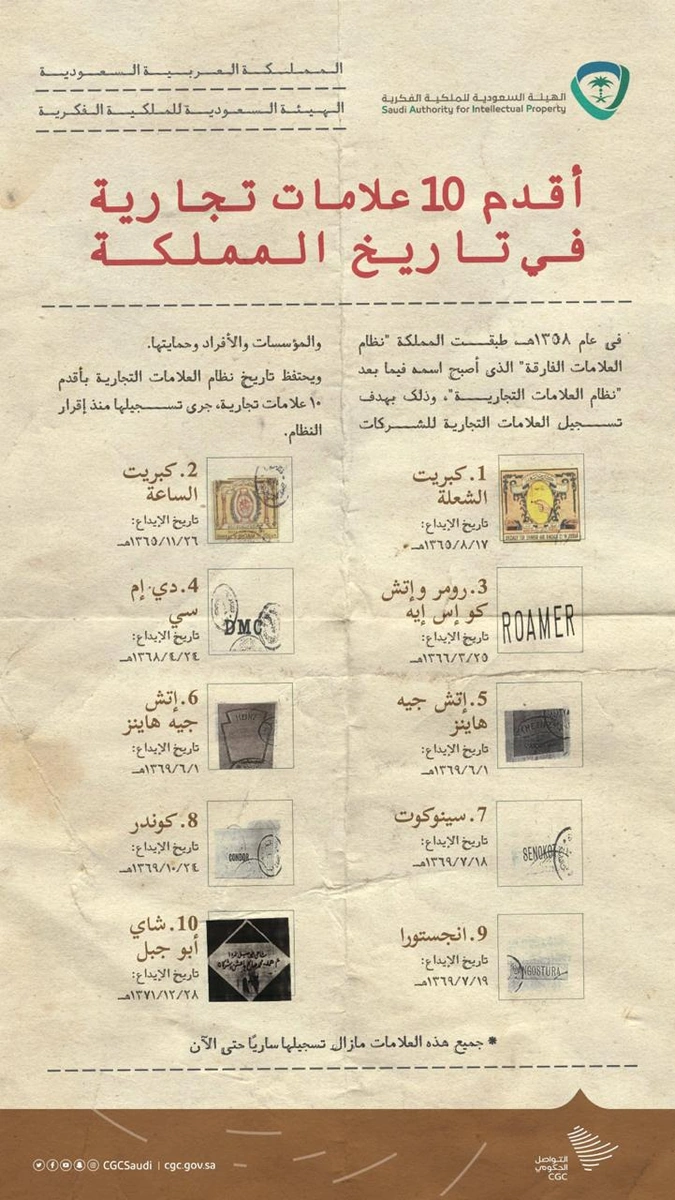 المملكة العربية السعودية
الهيئة السعودية للملكية الفكرية
الهيئة السعودية للملكية الفكرية
Saudi Authority for Intellectual Property
أقدم 10 علامات تجارية
في تاريخ المملكة
في عام ١٣٥٨هـ، طبقت المملكة "نظام
العلامات الفارقة" الذي أصبح اسمه فيما بعد
"نظام العلامات التجارية"، وذلك بهدف
تسجيل العلامات التجارية للشركات
والمؤسسات والأفراد وحمايتها.
ويحتفظ تاريخ نظام العلامات التجارية بأقدم
١٠ علامات تجارية، جرى تسجيلها منذ إقرار
النظام.
1. كبريت
الشعلة
تاريخ الإيداع:
١٣٦٥/٨/١٧هـ
2. كبريت
الساعة
تاريخ الإيداع:
١٣٦٥/١١/٢٦هـ
3. رومر وإتش
كو إس إيه
تاريخ الإيداع:
١٣٦٦/٣/٢٥هـ
ROAMER
4. دي إم
سي
تاريخ الإيداع:
١٣٦٨/٤/٢٤هـ
DMC
5. إتش جيه
هاينز
تاريخ الإيداع:
١٣٦٩/٦/١هـ
6. إتش
جيه هاينز
تاريخ الإيداع:
١٣٦٩/٦/١هـ
7. سينوكوت
تاريخ الإيداع:
١٣٦٩/٧/١٨هـ
SENOKOT
8. كوندر
تاريخ الإيداع:
١٣٦٩/١٠/٢٤هـ
CONDOR
9. انجستورا
تاريخ الإيداع:
١٣٦٩/٧/١٩هـ
ANGOSTURA
10. شاي
أبو جبل
تاريخ الإيداع:
١٣٧١/١٢/٢٨هـ
* جميع هذه العلامات مازال تسجيلها ساريًا حتى الآن
CGCSaudi | cgc.gov.sa
التواصل
الحكومي
CGC